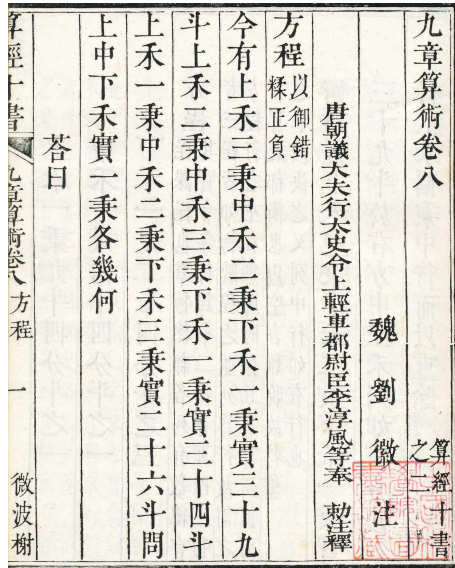 九章算術卷八
算經十書
之二
魏 劉徽 注
唐朝議大夫行太史令上輕車都尉臣李淳風等奉 勅注釋
方程以御錯
糅正負
今有上禾三秉中禾二秉下禾一秉實三十九
斗上禾二秉中禾三秉下禾一秉實三十四斗
上禾一秉中禾二秉下禾三秉實二十六斗問
上中下禾實一秉各幾何
荅曰
算經十書 九章算術卷八 方程 一 微波榭